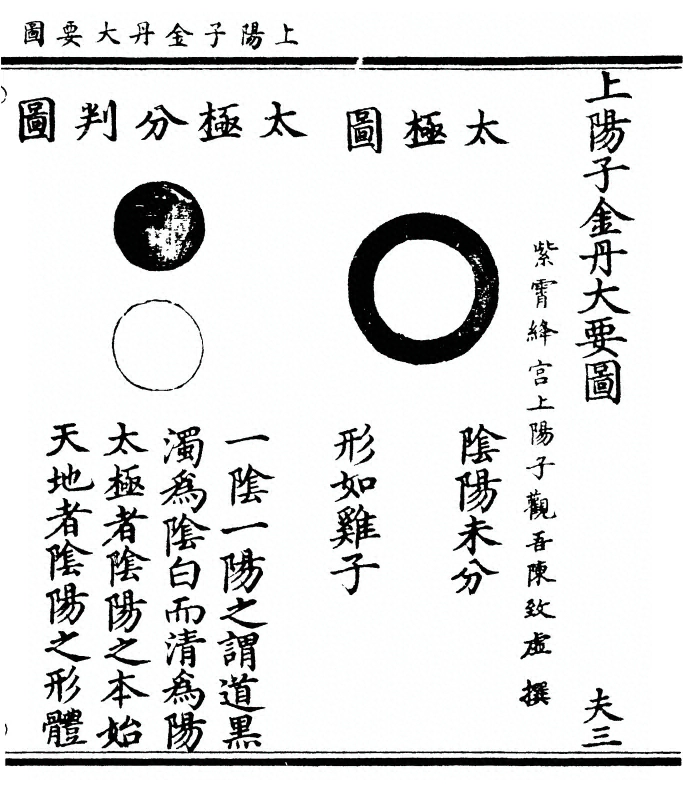 上陽子金丹大要圖
上陽子金丹大要圖
夫三
紫霄絳宮上陽子觀吾陳致虛撰
太極圖
陰陽未分
形如雞子
太極分判圖
一陰一陽之謂道黑
濁爲陰白而清爲陽
太極者陰陽之本始
天地者陰陽之形體